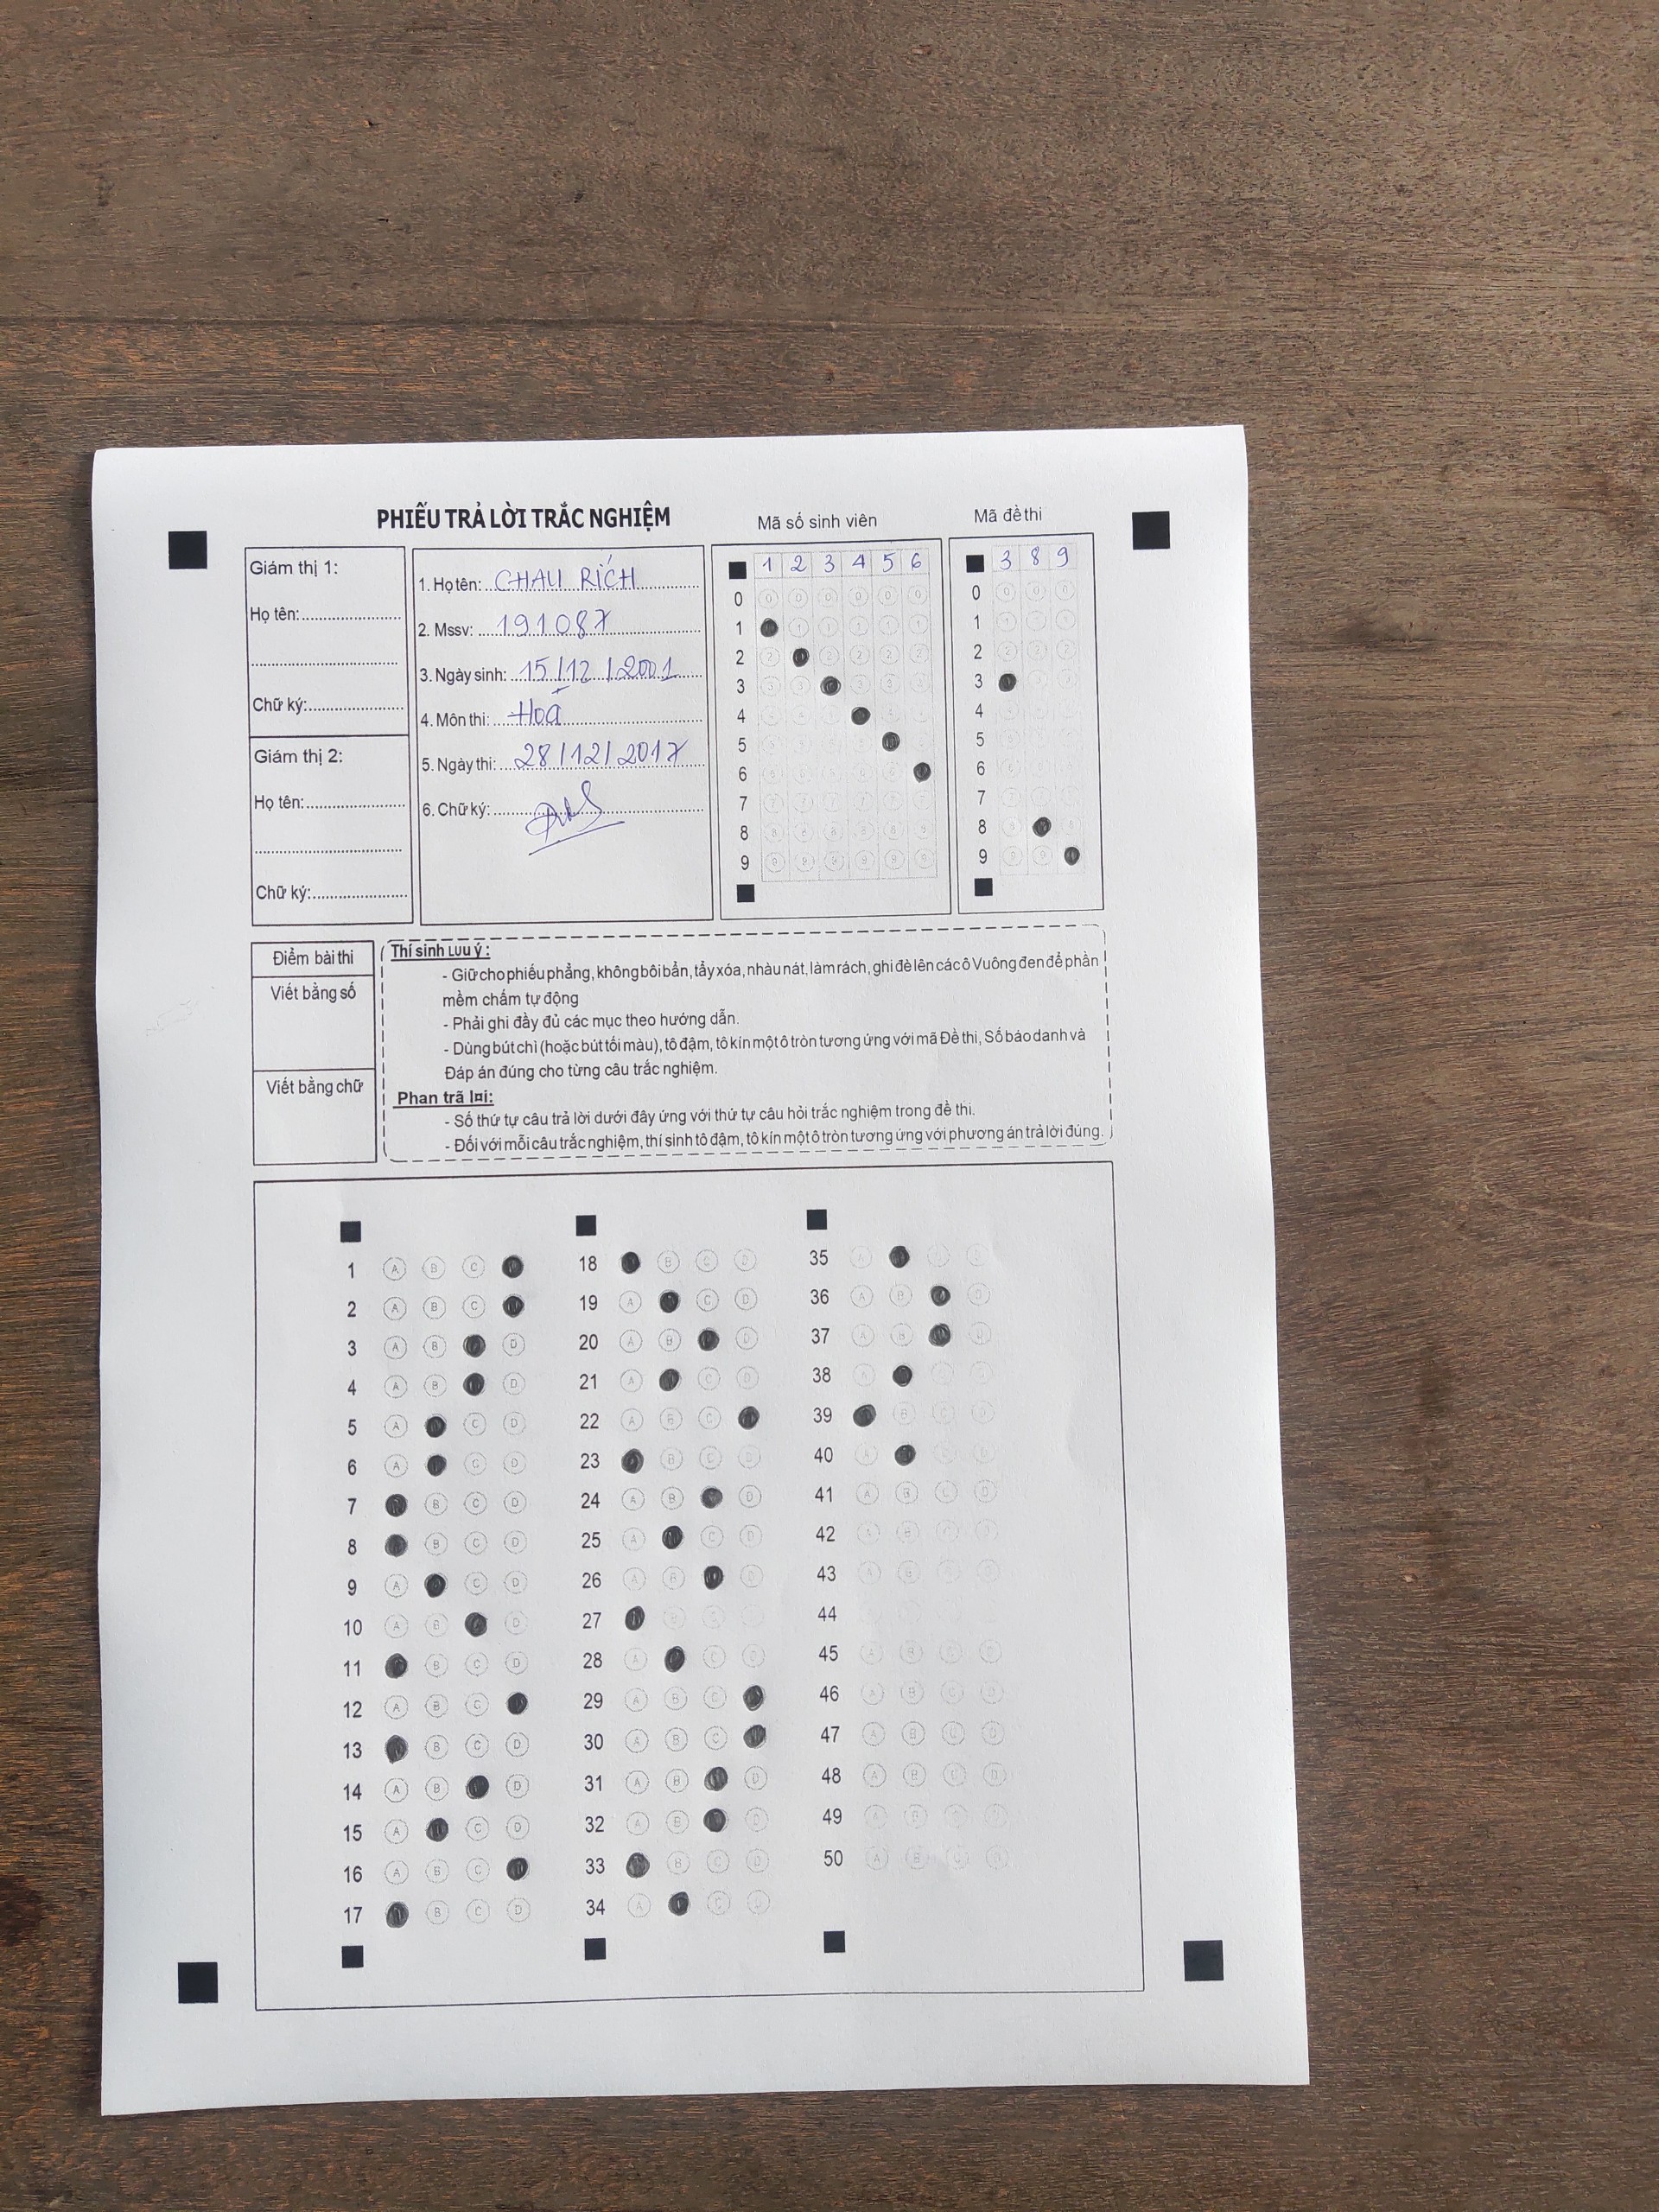 PHIẾU TRẢ LỜI TRẮC NGHIỆM
Mã số sinh viên
Mã đề thi
Giám thị 1:
Họ tên:
Chữ ký:
Giám thị 2:
Họ tên:
Chữ ký:
1. Họ tên: CHAU RÍCH
2. Mssv: 191087
3. Ngày sinh: 15/12/2001
4. Môn thi: Hoá
5. Ngày thi: 28/12/2017
6. Chữ ký:
1 2 3 4 5 6
0
1
2
3
4
5
6
7
8
9
3 8 9
0
1
2
3
4
5
6
7
8
9
Điểm bài thi
Viết bằng số
Viết bằng chữ
Thí sinh Lưu ý :
- Giữ cho phiếu phẳng, không bôi bẩn, tẩy xóa, nhàu nát, làm rách, ghi đè lên các ô Vuông đen để phần
mềm chấm tự động
- Phải ghi đầy đủ các mục theo hướng dẫn.
- Dùng bút chì (hoặc bút tối màu), tô đậm, tô kín một ô tròn tương ứng với mã Đề thi, Số báo danh và
Đáp án đúng cho từng câu trắc nghiệm.
Phan trã lơi:
- Số thứ tự câu trả lời dưới đây ứng với thứ tự câu hỏi trắc nghiệm trong đề thi.
- Đối với mỗi câu trắc nghiệm, thí sinh tô đậm, tô kín một ô tròn tương ứng với phương án trả lời đúng.
1 A B C
2 A B C
3 A B D
4 A B D
5 A C D
6 A C D
7 B C D
8 B C D
9 A C D
10 A B D
11 B C D
12 A B C
13 B C D
14 A B D
15 A C D
16 A B C
17 B C D
18 B C D
19 A C D
20 A B D
21 A C D
22 A B C
23 B C D
24 A B D
25 A C D
26 A B D
27
28 A C D
29 A B C
30 A B C
31 A B D
32 A B D
33 B C D
34 A C D
35 A C D
36 A B D
37 A B D
38
39 B C D
40
41 A B C D
42 A B C D
43 A B C D
44
45 A B C D
46 A B C D
47 A B C D
48 A B C D
49 A B C D
50 A B C D